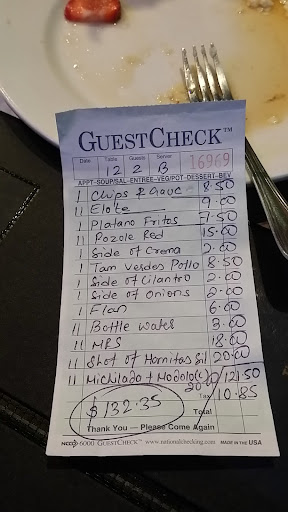 GUESTCHECK™
Date Table Guests Server
12 2 B 16969
APPT-SOUP/SAL-ENTREE-VEG/POT-DESSERT-BEV
1 Chips & Guac 8.50
11 Elote 9.00
1 Platano Fritos 7.50
11 Pozole Red 15.00
1 Side of Crema 2.00
1 Tam Verdes Pollo 8.50
1 Side of Cilantro 2.00
1 Side of Onions 2.00
1 Flan 6.00
11 Bottle water 3.00
11 MRS 18.00
11 Shot of Hornitas Sil 20.00
11 Michilado + Modolo(s) 20.00 121.50
Tax 10.85
$132.35
Total
Thank You — Please Come Again
NCCO 6000 GUESTCHECK™ www.nationalchecking.com MADE IN THE USA